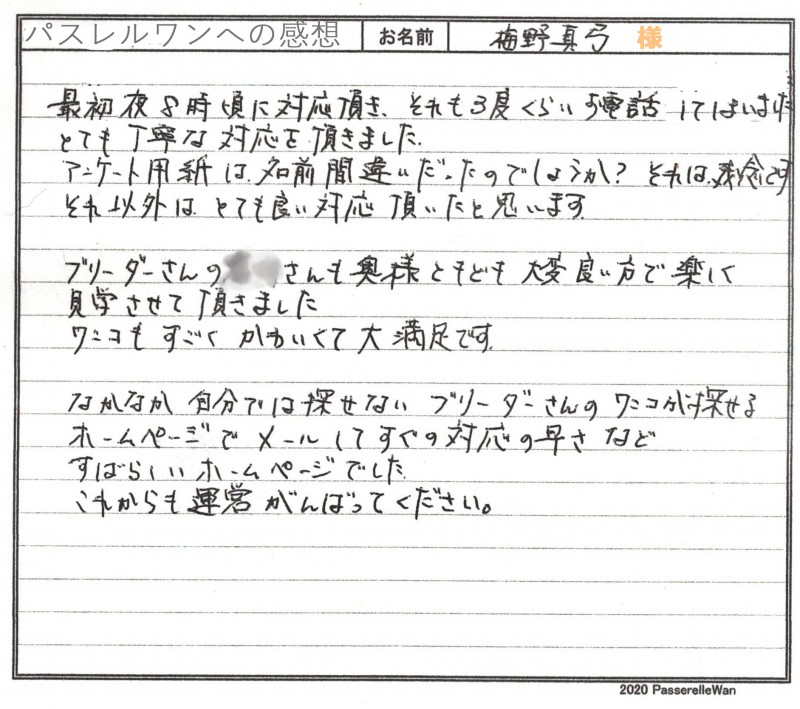 パスレルワンへの感想 お名前 梅野真弓 様
最初夜8時頃に対応頂き、それも3度くらいお電話してしまいました
とても丁寧な対応を頂きました。
アンケート用紙は、名前間違いだったのでしょうか？それは、残念です
それ以外は、とても良い対応頂いたと思います。
ブリーダーさんの さんも奥様ともども大変良い方で楽しく
見学させて頂きました
ワンコもすごくかわいくて大満足です。
なかなか自分では探せないブリーダーさんのワンコが探せる
ホームページでメールしてすぐの対応の早さなど
すばらしいホームページでした。
これからも運営がんばってください。
2020 PasserelleWan